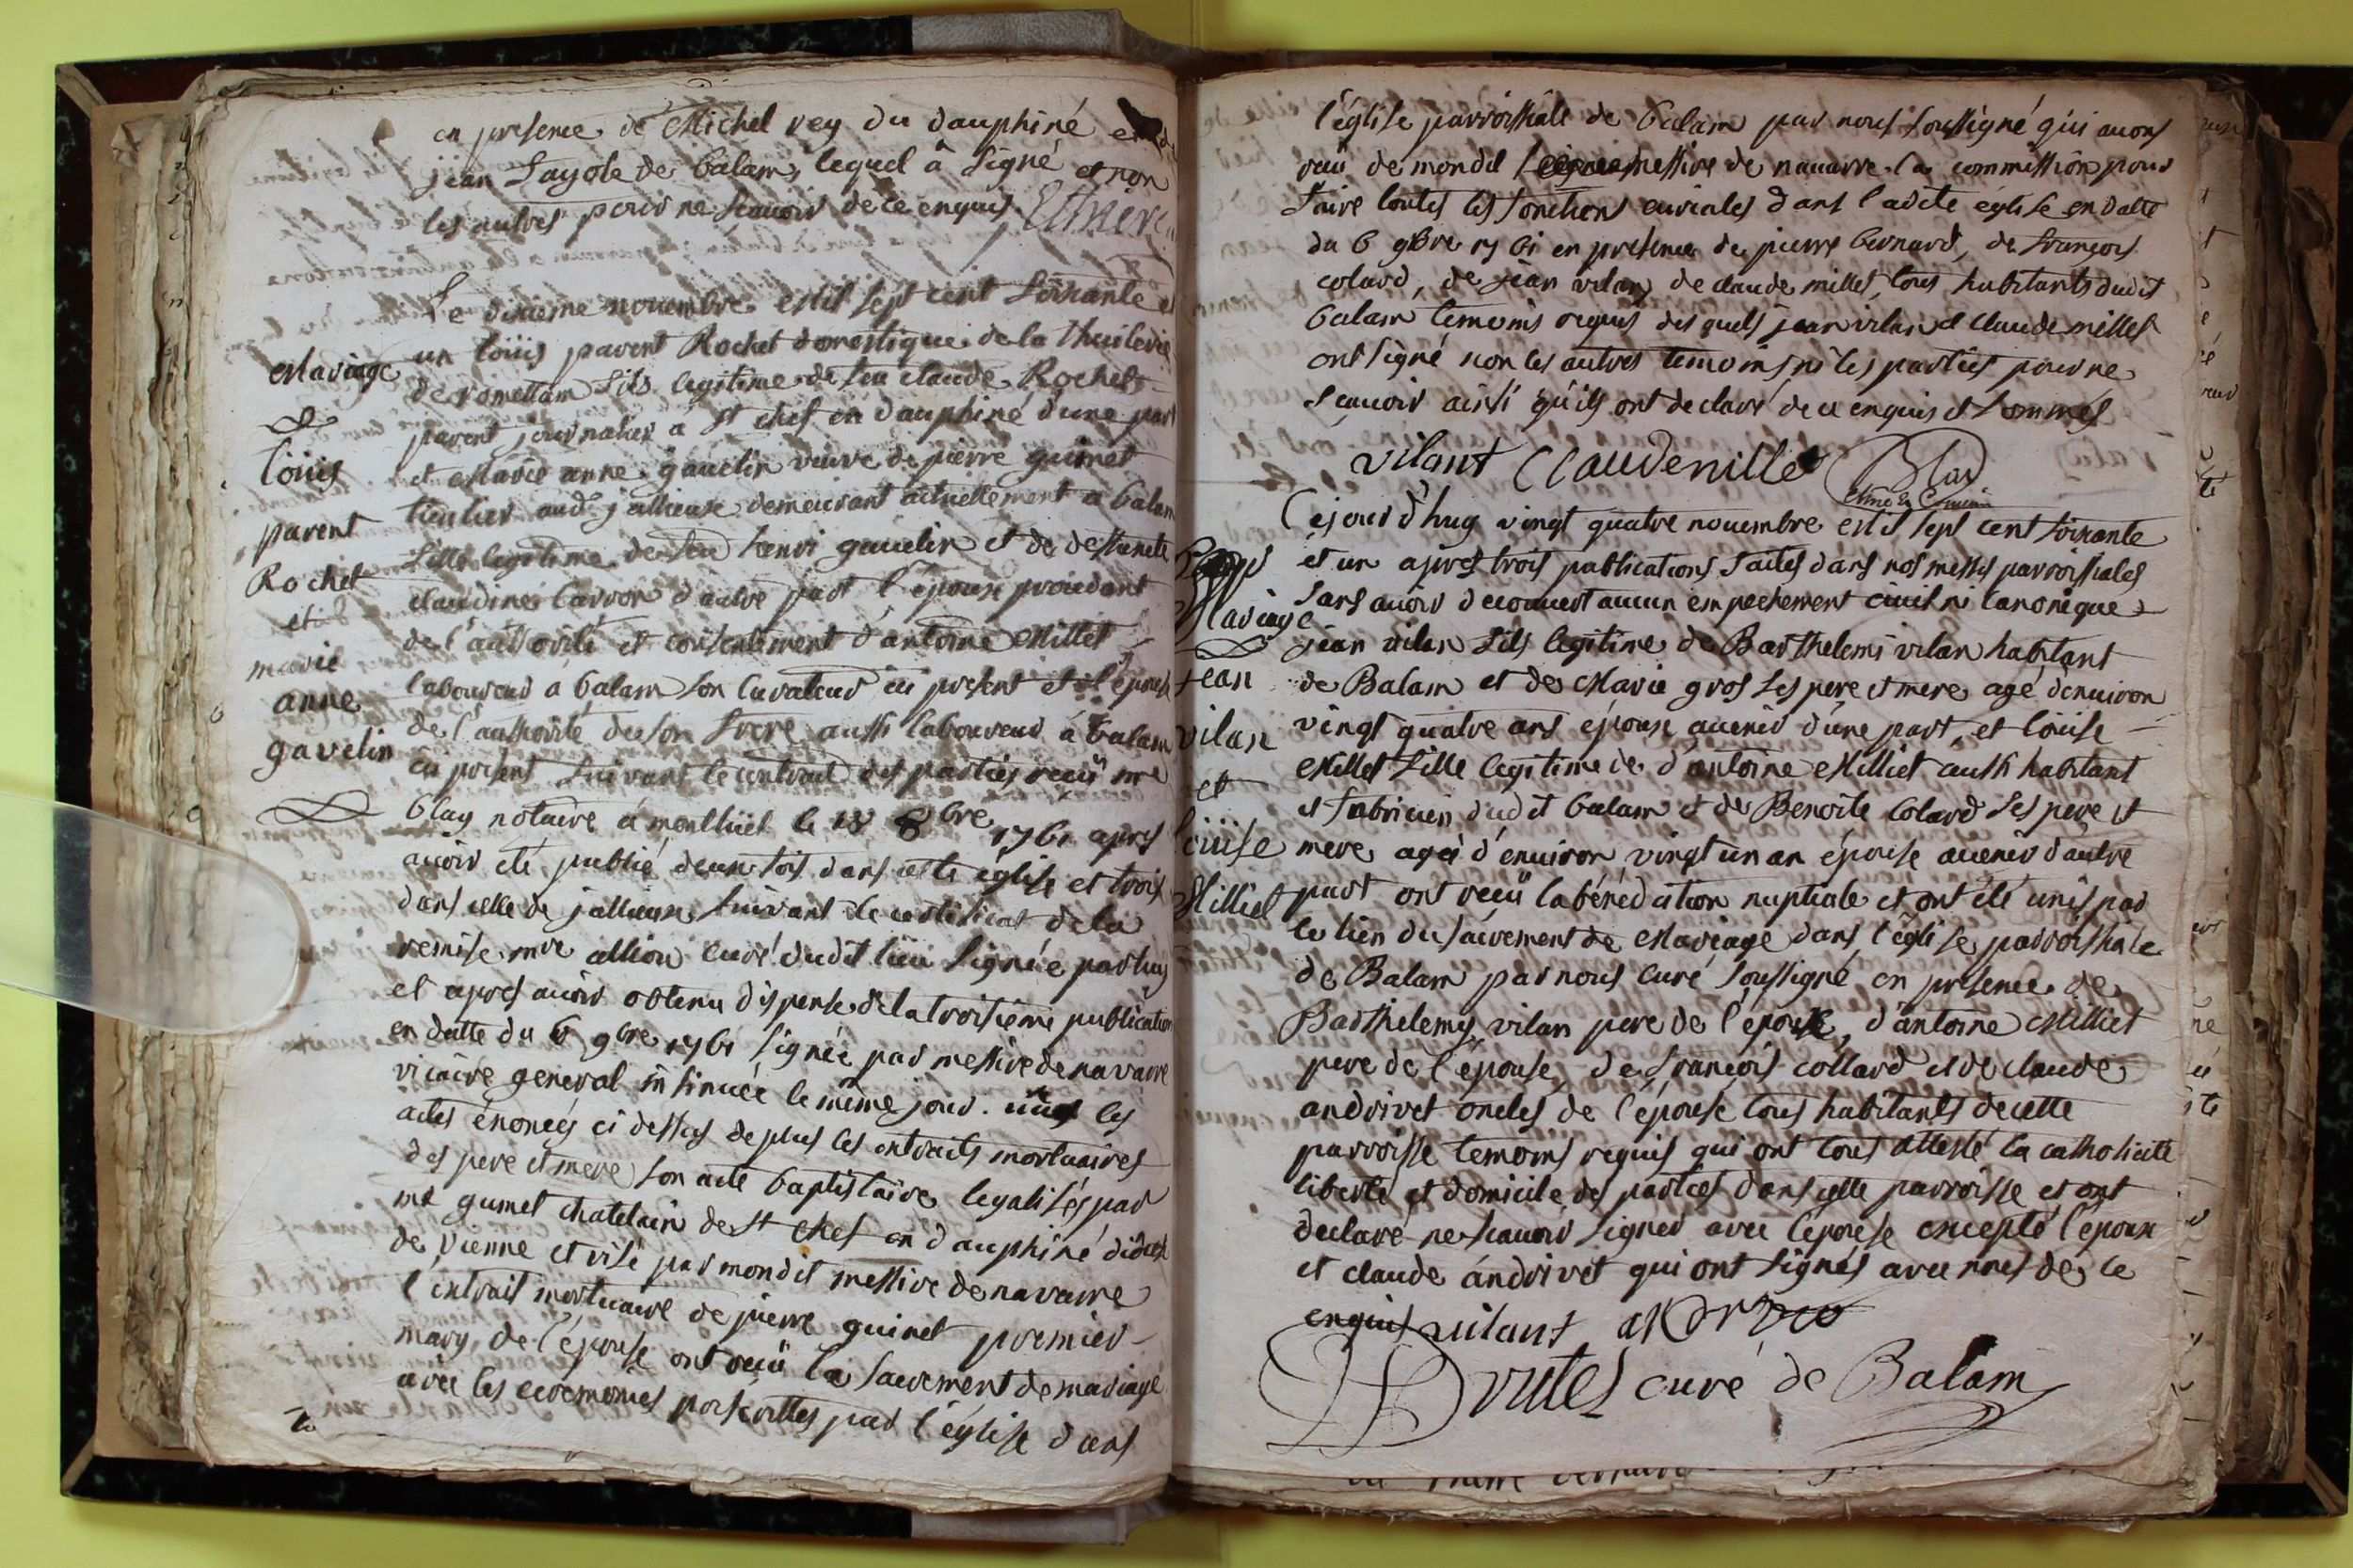 en presence de Michel rey du dauphiné et de
jean Layole de balam, lequel à signé et non
les autres pour ne scauoir de ce enquis
Le dixieme nouembre Mil sept cent soixante et
un loüis parent Rochet domestique de la thuilerie
de rimettam fils legitime de feu claude Rochet
parent journalier a st chef en dauphiné d'une part
et Marie anne gauelin veuve de pierre guinet
demeurant actuellement a balam
fille legitime de feu henri gauelin et de deffunte
claudine carron d'autre part l'epoux procedant
de l'authorité et consentement d'antoine Millet
laboureur a balam son curateur ici present et l'epouse
de l'authorité de son frere aussi laboureur à balam
ici present suivant le contract des parties recü me
blay notaire á montluël le 18 8bre 1761 apres
auoir été publié deux fois dans cette église et trois
dans celle de jallieux, suivant le certificat de la
remise mre allion curé dudit lieu signée par luy
et apres auoir obtenu dispense de la troisieme publication
en datte du 6 9bre 1761 signée par messire de navarre
vicaire general insinuée le même jour. vües les
actes énoncés ci dessus de plus les extraits mortuaires
des pere et mere son acte baptistaire legalisés par
me gumet chatelain de st chef en dauphiné
de vienne et visé par mondit messire de navarre
l'extrait mortuaire de pierre guinet premier
mary de l'épouse ont recü le sacrement de mariage
avec les ceremonies prescrittes par l'église dans
Mariage
Loüis
parent
Rochet
et
marie
anne
gavelin
l'église parroissiale de balam par nous soussigné qui auons
recü de mondit messire de nauarre la commission pour
faire toutes les fonctions curiales dans ladite église en datte
du 6 9bre 1761 en presence de pierre bernard, de françois
colard, de jean vilan, de claude millet, tous habitants dudit
balam temoins requis des quels jean vilan et claude millet
ont signé non les autres temoins ni les parties pour ne
scauoir ainsi qu'ils ont declaré de ce enquis et sommés
vilant Claude millet
Cejourd'huy vingt quatre nouembre Mil sept cent soixante
et un apres trois publications faites dans nos messes parroissiales
sans auoir decouuert aucun empechement ciuil ni canonique
jean vilan fils legitime de Barthelemi vilan habitant
de Balam et de Marie gros ses pere et mere agé d'enuiron
vingt quatre ans époux auenir d'une part, et loüise
Millet fille legitime de d'antoine Milliet aussi habitant
et fabricien dudit balam et de Benoite colard ses pere et
mere agée d'enuiron vingt un an épouse auenir d'autre
part ont recü la bénédiction nuptiale et ont été unis par
le lien du sacrement de Mariage dans l'église parroissiale
de Balam par nous curé soussigné en presence de
Barthelemy vilan pere de l'époux, d'antoine Milliet
pere de l'épouse, de françois collard et de claude
andrivet oncles de l'épouse tous habitants de cette
parroisse temoins requis qui ont tous attesté la catholicité
liberté et domicile des parties dans cette parroisse et ont
declaré ne scauoir signer avec l'épouse excepté l'époux
et claude andrivet qui ont signés avec nous de ce
enquis vilant
Brutel curé de Balam
Mariage
jean
vilan
et
loüise
Milliet